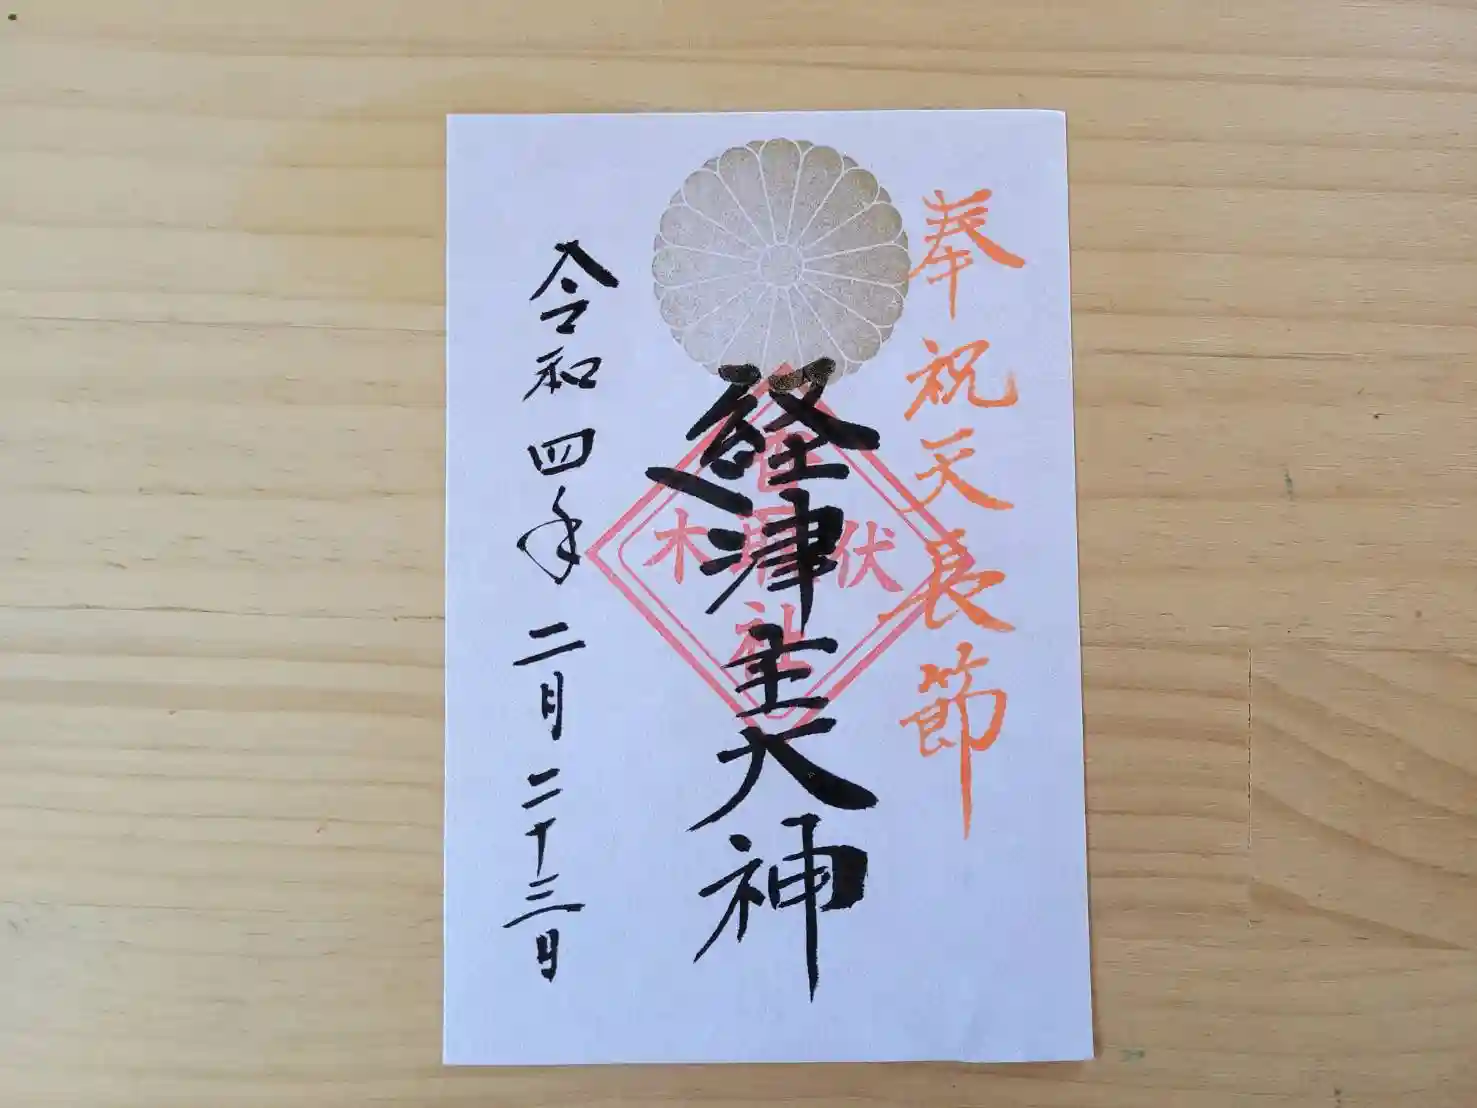 奉祝天長節
経津主大神
伏木
香取社
令和四年二月二十三日